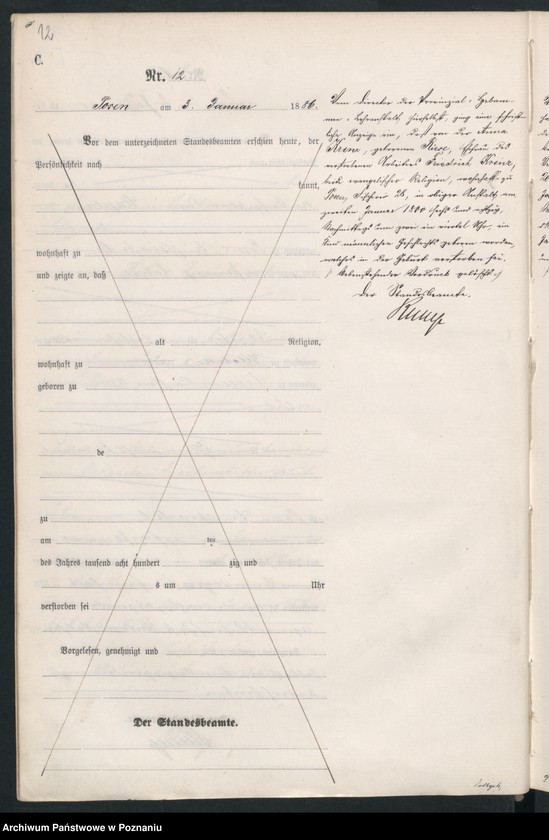 12
C.
Nr. 12
Posen am 3. Januar 1886.
Vor dem unterzeichneten Standesbeamten erschien heute, der
Persönlichkeit nach
kannt,
wohnhaft zu
und zeigte an, daß
alt Religion,
wohnhaft zu
geboren zu
de
zu
am ten
des Jahres tausend acht hundert zig und
s um Uhr
verstorben sei
Vorgelesen, genehmigt und
Der Standesbeamte.
Vom Director der Provinzial-Hebam-
men-Lehranstalt hierselbst, ging ein schrift-
liche Anzeige ein, daß von der Anna
Krenz, geborenen Ehefrau des
Friedrich Krenz,
evangelischer Religion, wohnhaft zu
Posen, Fischerei 26, in obiger Anstalt am
zweiten Januar 1800 sechs und achtzig,
Nachmittags um zwei ein viertel Uhr, ein
Kind männlichen Geschlechts geboren worden,
welches in der Geburt verstorben sei.
Nebenstehender Vordruck gelöscht.
Der Standesbeamte.
Archiwum Państwowe w Poznaniu